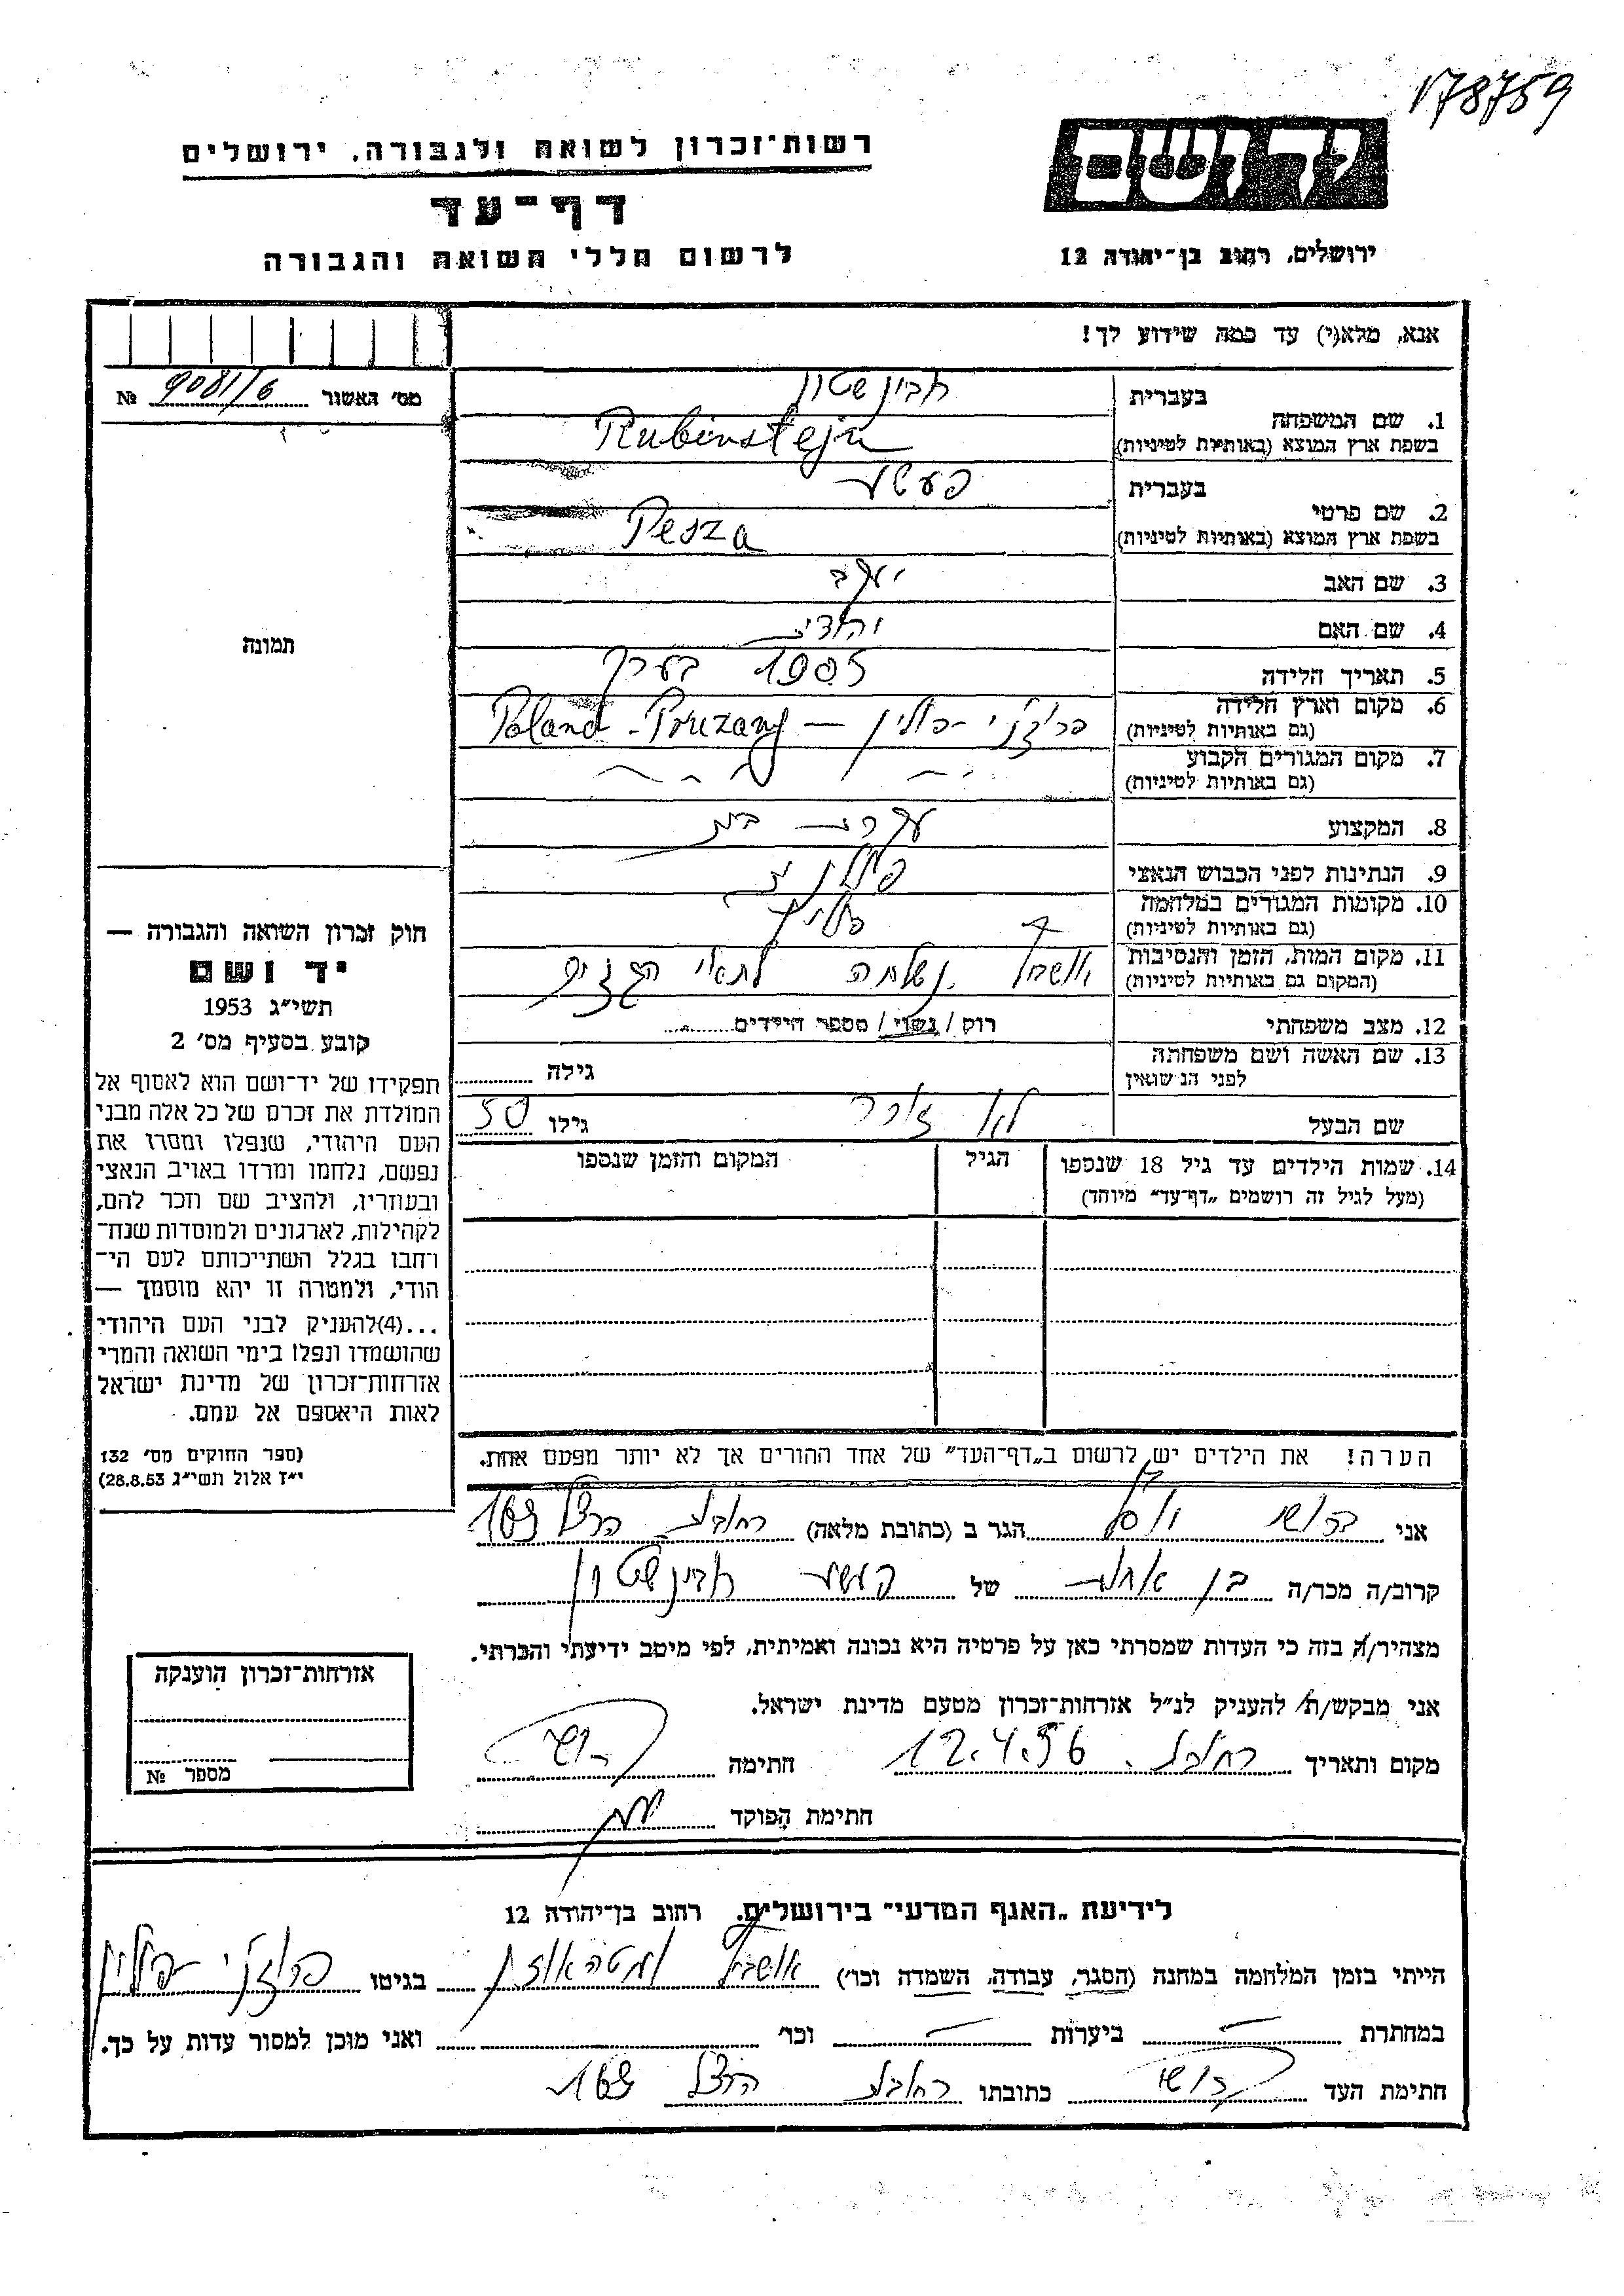 178759
רשות־זכרון לשואה ולגבורה, ירושלים
יד ושם
דף־עד
לרשום חללי השואה והגבורה
ירושלים, רחוב בן־יהודה 12
אנא, מלא(י) עד כמה שידוע לך!
מס׳ האשור 9081/6 №
תמונה
1. שם המשפחה בעברית רובינשטיין
בשפת ארץ המוצא (באותיות לטיניות) Rubinstejn
2. שם פרטי בעברית פעשע
בשפת ארץ המוצא (באותיות לטיניות) Pesza
3. שם האב יעקב
4. שם האם יהודית
5. תאריך הלידה 1905 בערך
6. מקום וארץ הלידה פרוז׳ני – פולין — Poland - Pruzany
(גם באותיות לטיניות)
7. מקום המגורים הקבוע
(גם באותיות לטיניות)
8. המקצוע עקרת בית
9. הנתינות לפני הכבוש הנאצי פולנית
10. מקומות המגורים במלחמה פולין
(גם באותיות לטיניות)
11. מקום המות, הזמן והנסיבות אושביץ נשלחה לתאי הגזים
(המקום גם באותיות לטיניות)
12. מצב משפחתי רוק / נשוי / מספר הילדים
13. שם האשה ושם משפחתה גילה
לפני הנשואין
שם הבעל גילו 50
14. שמות הילדים עד גיל 18 שנספו הגיל המקום והזמן שנספו
(מעל לגיל זה רושמים „דף־עד״ מיוחד)
הערה! את הילדים יש לרשום ב„דף־העד״ של אחד ההורים אך לא יותר מפעם אחת.
חוק זכרון השואה והגבורה —
יד ושם
תשי״ג 1953
קובע בסעיף מס׳ 2
תפקידו של יד־ושם הוא לאסוף אל
המולדת את זכרם של כל אלה מבני
העם היהודי, שנפלו ומסרו את
נפשם, נלחמו ומרדו באויב הנאצי
ובעוזריו, ולהציב שם וזכר להם,
לקהילות, לארגונים ולמוסדות שנח־
רחבו בגלל השתייכותם לעם הי־
הודי, ולמטרה זו יהא מוסמך —
...(4)להעניק לבני העם היהודי
שהושמדו ונפלו בימי השואה והמרי
אזרחות־זכרון של מדינת ישראל
לאות היאספם אל עמם.
(ספר החוקים מס׳ 132
י״ז אלול תשי״ג 28.8.53)
אני יוסף הגר ב (כתובת מלאה) רחובות הרצל 169
קרוב/ה מכר/ה בן אחות של פעשע רובינשטיין
מצהיר/ה בזה כי העדות שמסרתי כאן על פרטיה היא נכונה ואמיתית, לפי מיטב ידיעתי והכרתי.
אני מבקש/ת להעניק לנ״ל אזרחות־זכרון מטעם מדינת ישראל.
מקום ותאריך רחובות 12.4.56 חתימה
חתימת הפוקד
אזרחות־זכרון הוענקה
מספר №
לידיעת „האגף המדעי״ בירושלים, רחוב בן־יהודה 12
הייתי בזמן המלחמה במחנה (הסגר, עבודה, השמדה וכו׳) אושביץ ומטהאוזן בגיטו פרוז׳ני – פולין
במחתרת — ביערות — וכו׳ ואני מוכן למסור עדות על כך.
חתימת העד כתובתו רחובות הרצל 169